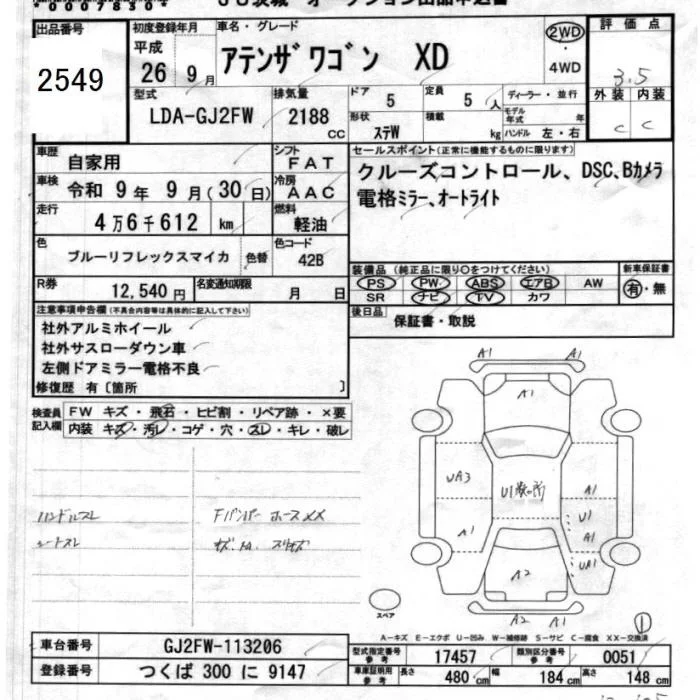 00078304
JU茨城 オークション出品申込書
出品番号 初度登録年月 車名・グレード 2WD 評価点
2549 平成 26 9月 アテンザワゴン XD ・ 4WD 3.5
型式 排気量 ドア 5 定員 5人 ディーラー・並行 外装 内装
LDA-GJ2FW 2188 CC 形状 ステW 積載 kg モデル年式 年 ハンドル 左・右 C C
車歴 自家用 シフト FAT セールスポイント(正常に機能するものに限ります)
車検 令和 9年 9月(30日) 冷房 AAC クルーズコントロール、DSC、Bカメラ
走行 4万6千612 km 燃料 軽油 電格ミラー、オートライト
色 ブルーリフレックスマイカ 色替 色コード 42B
装備品(純正品に限り○をつけてください) 新車保証書
R券 12,540円 名変通知期限 月 日 PS PW ABS エアB AW 有・無
SR ナビ TV カワ
注意事項申告欄(不具合内容等は具体的に記入して下さい) 後日品 保証書・取説
社外アルミホイール
社外サスローダウン車
左側ドアミラー電格不良
修復歴 有〔箇所 〕
A1 A1
A1
検査員記入欄 FW キズ・飛石・ヒビ割・リペア跡・×要
内装 キズ・汚レ・コゲ・穴・スレ・キレ・破レ
UA3 U1散所 A1
ハンドルスレ Fバンパー ホースXX U1
シートスレ A1 A1
UA1
A2
スペア A2 A1 1
A-キズ E-エクボ U-凹み W-補修跡 S-サビ C-腐食 XX-交換済
車台番号 GJ2FW-113206 型式指定番号参考 17457 類別区分番号参考 0051
登録番号 つくば 300 に 9147 車庫証明用参考 長さ 480cm 幅 184cm 高さ 148cm